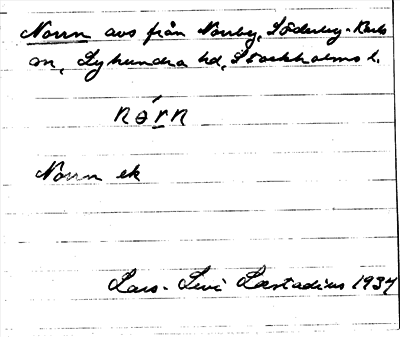 Norrn avs från Norrby, Söderby-Karls
sn, Lyhundra hd, Stockholms l.
nɵ́rn
Norrn ek
Lars-Levi Læstadius 1937